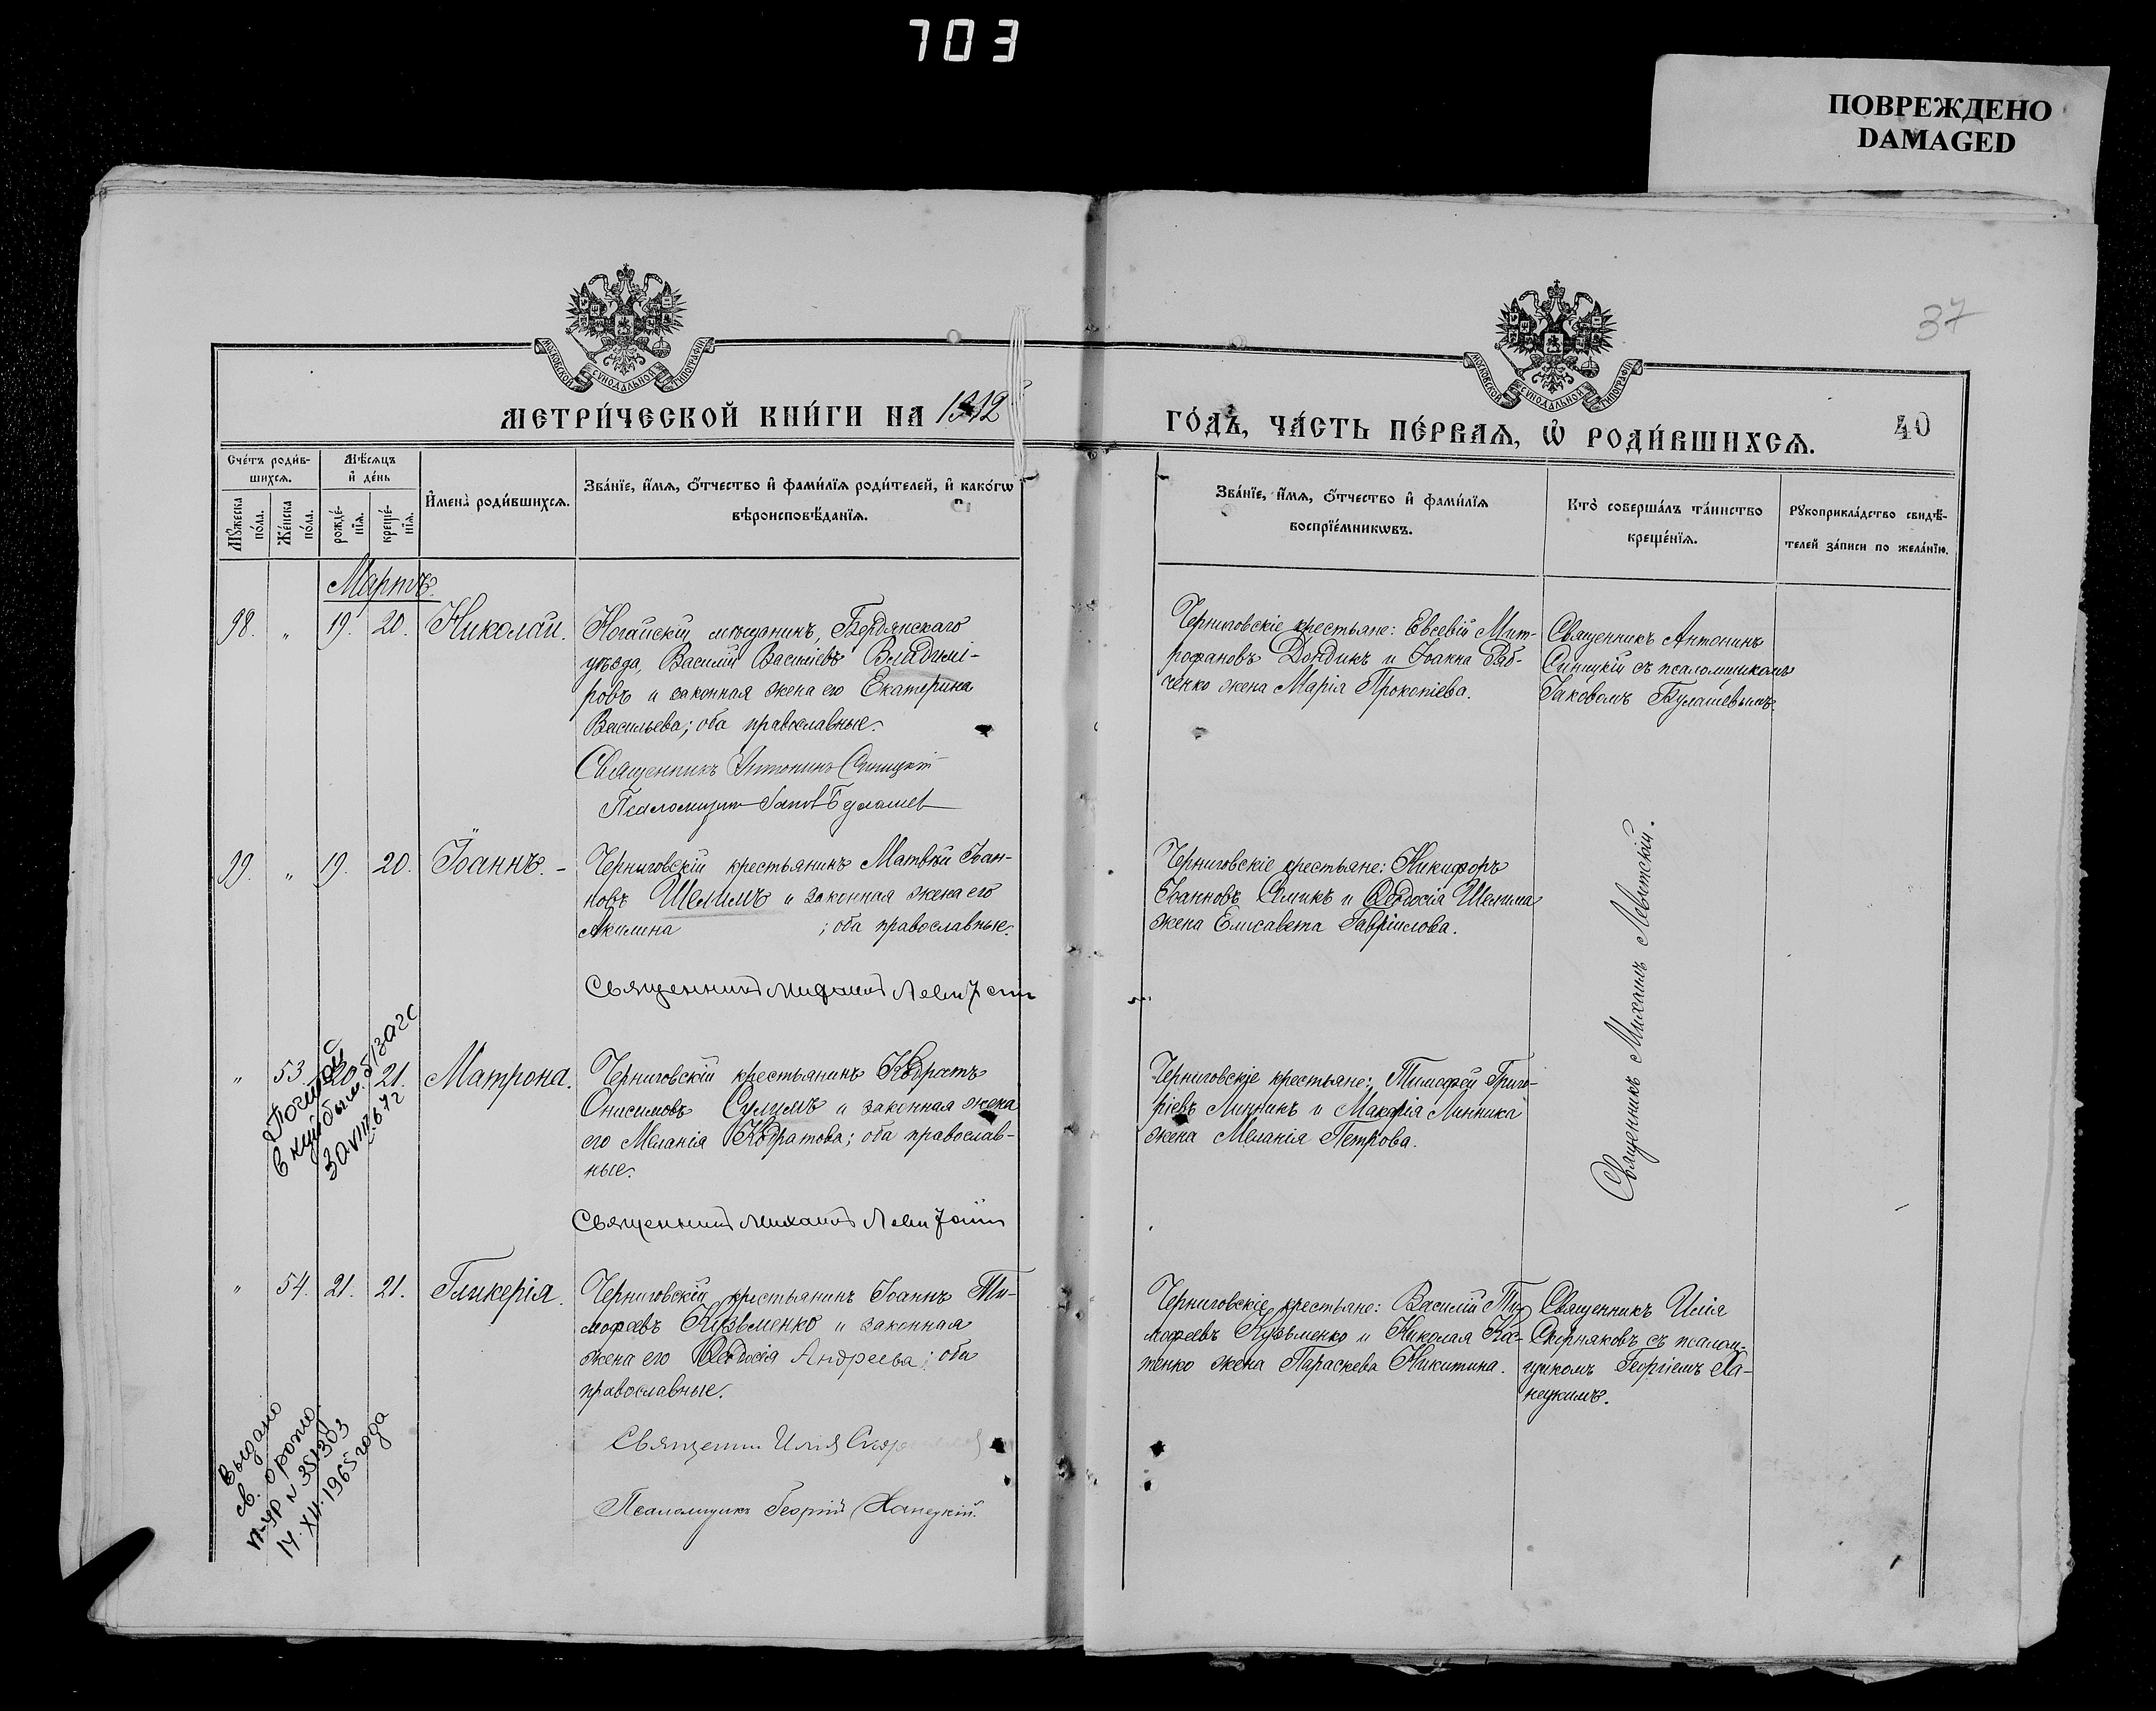 703
ПОВРЕЖДЕНО
DAMAGED
37
МОСКОВСКОЙ СѴНОДАЛЬНОЙ ТИПОГРАФІИ
МОСКОВСКОЙ СѴНОДАЛЬНОЙ ТИПОГРАФІИ
МЕТРИ́ЧЕСКОЙ КНИ́ГИ НА 1912
ГО́ДЪ, ЧА́СТЬ ПЕ́РВАѦ, Ѡ҆ РОДИ́ВШИХСѦ.
40
Сче́тъ роди́в-
шихсѧ.
Мѣ́сѧцъ
и҆ де́нь
Мꙋ́жеска
по́ла.
Же́нска
по́ла.
рожде́-
нїѧ.
креще́-
нїѧ.
И҆мена̀ роди́вшихсѧ.
Зва́нїе, и҆́мѧ, ѻ҆́тчество и҆ фами́лїѧ роди́телей, и҆ како́гѡ
вѣроисповѣ́данїѧ.
Зва́нїе, и҆́мѧ, ѻ҆́тчество и҆ фами́лїѧ
воспрїе́мникѡвъ.
Кто̀ соверша́лъ та́инство
креще́нїѧ.
Рꙋкоприкла́дство свидѣ́-
телей за́писи по жела́нїю.
Мартъ.
98. " 19. 20. Николай.
Ногайскій мѣщанинъ, Бердянскаго
уѣзда, Василій Васильевъ Владимі-
ровъ и законная жена его Екатерина
Васильева; оба православные.
Священникъ Антонинъ Синицкій
Псаломщикъ Булашев
Черниговскіе крестьяне: Евсевій Мит-
рофановъ Дондикъ и Іоанна Ряб-
ченко жена Марія Прокопіева.
Священникъ Антонинъ
Синицкій съ псаломщикомъ
Іаковомъ Булашевымъ.
99. " 19. 20. Іоаннъ. -
Черниговскій крестьянинъ Матвѣй Іоан-
новъ Шелимъ и законная жена его
Акилина ; оба православные.
Священник Михаил Левитский
Черниговскіе крестьяне: Никифоръ
Іоанновъ Семикъ и Ѳеодосія Шелима
жена Елисавета Гавріилова.
Священникъ Михаилъ Левитскій.
" 53. 20. 21. Матрона.
Черниговскій крестьянинъ Кодратъ
Онисимовъ Сулимъ и законная жена
его Меланія Кодратова; оба православ-
ные.
Священник Михаил Левитский
Черниговскіе крестьяне: Тимофей Григо-
ріевъ Линникъ и Макарія Линника
жена Меланія Петрова.
в куйбыш. р/загс
30.VIII 67г
" 54. 21. 21. Гликерія.
Черниговскій крестьянинъ Іоаннъ Ти-
мофеевъ Кузьменко и законная
жена его Ѳеодосія Андреева; оба
православные.
Священник Илія
Псаломщикъ Георгій Ханецкій.
Черниговскіе крестьяне: Василій Ти-
мофеевъ Кузьменко и Николая Ко-
тенко жена Параскева Никитина.
Священникъ Илія
Скорняковъ съ псалом-
щикомъ Георгіемъ Ха-
нецкимъ.
Выдано
св. о рожд.
14. XII. 1965 года